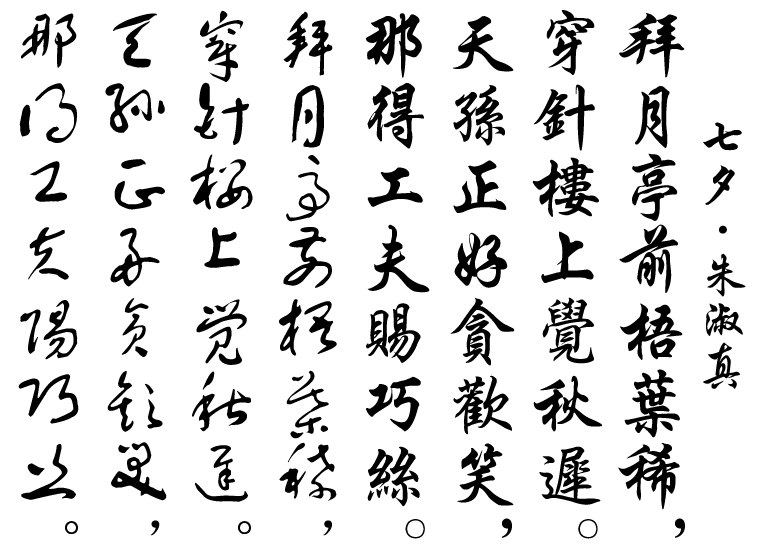 七夕·朱淑真
拜月亭前梧葉稀，
穿針樓上覺秋遲。
天孫正好貪歡笑，
那得工夫賜巧絲。
拜月亭前梧葉稀，
穿針樓上覺秋遲。
天孫正好貪歡笑，
那得工夫賜巧絲。